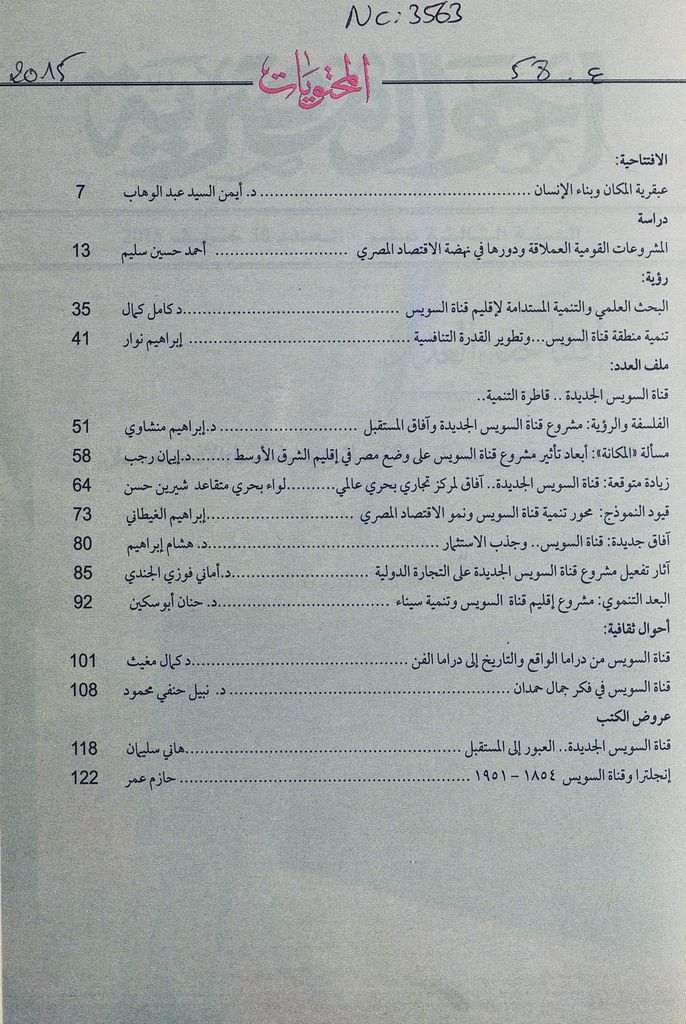 Nc: 3563
2015
ع. 58
المحتويات
الافتتاحية:
عبقرية المكان وبناء الإنسان ........ د. أيمن السيد عبد الوهاب 7
دراسة
المشروعات القومية العملاقة ودورها في نهضة الاقتصاد المصري ........ أحمد حسين سليم 13
رؤية:
البحث العلمي والتنمية المستدامة لإقليم قناة السويس ........د كامل كمال 35
تنمية منطقة قناة السويس...وتطوير القدرة التنافسية ........ إبراهيم نوار 41
ملف العدد:
قناة السويس الجديدة .. قاطرة التنمية..
الفلسفة والرؤية: مشروع قناة السويس الجديدة وآفاق المستقبل ........ د.إبراهيم منشاوي 51
مسألة «المكانة»: أبعاد تأثير مشروع قناة السويس على وضع مصر في إقليم الشرق الأوسط ........د.إيمان رجب 58
زيادة متوقعة: قناة السويس الجديدة.. آفاق لمركز تجاري بحري عالمي..........لواء بحري متقاعد شيرين حسن 64
قيود النموذج: محور تنمية قناة السويس ونمو الاقتصاد المصري ........إبراهيم الغيطاني 73
آفاق جديدة: قناة السويس.. وجذب الاستثمار ........د. هشام إبراهيم 80
آثار تفعيل مشروع قناة السويس الجديدة على التجارة الدولية ........د.أماني فوزي الجندي 85
البعد التنموي: مشروع إقليم قناة السويس وتنمية سيناء ........د. حنان أبوسكين 92
أحوال ثقافية:
قناة السويس من دراما الواقع والتاريخ إلى دراما الفن ........د كمال مغيث 101
قناة السويس في فكر جمال حمدان ........ د. نبيل حنفي محمود 108
عروض الكتب
قناة السويس الجديدة.. العبور إلى المستقبل ........هاني سليمان 118
إنجلترا وقناة السويس ١٨٥٤ - ١٩٥١ ........ حازم عمر 122